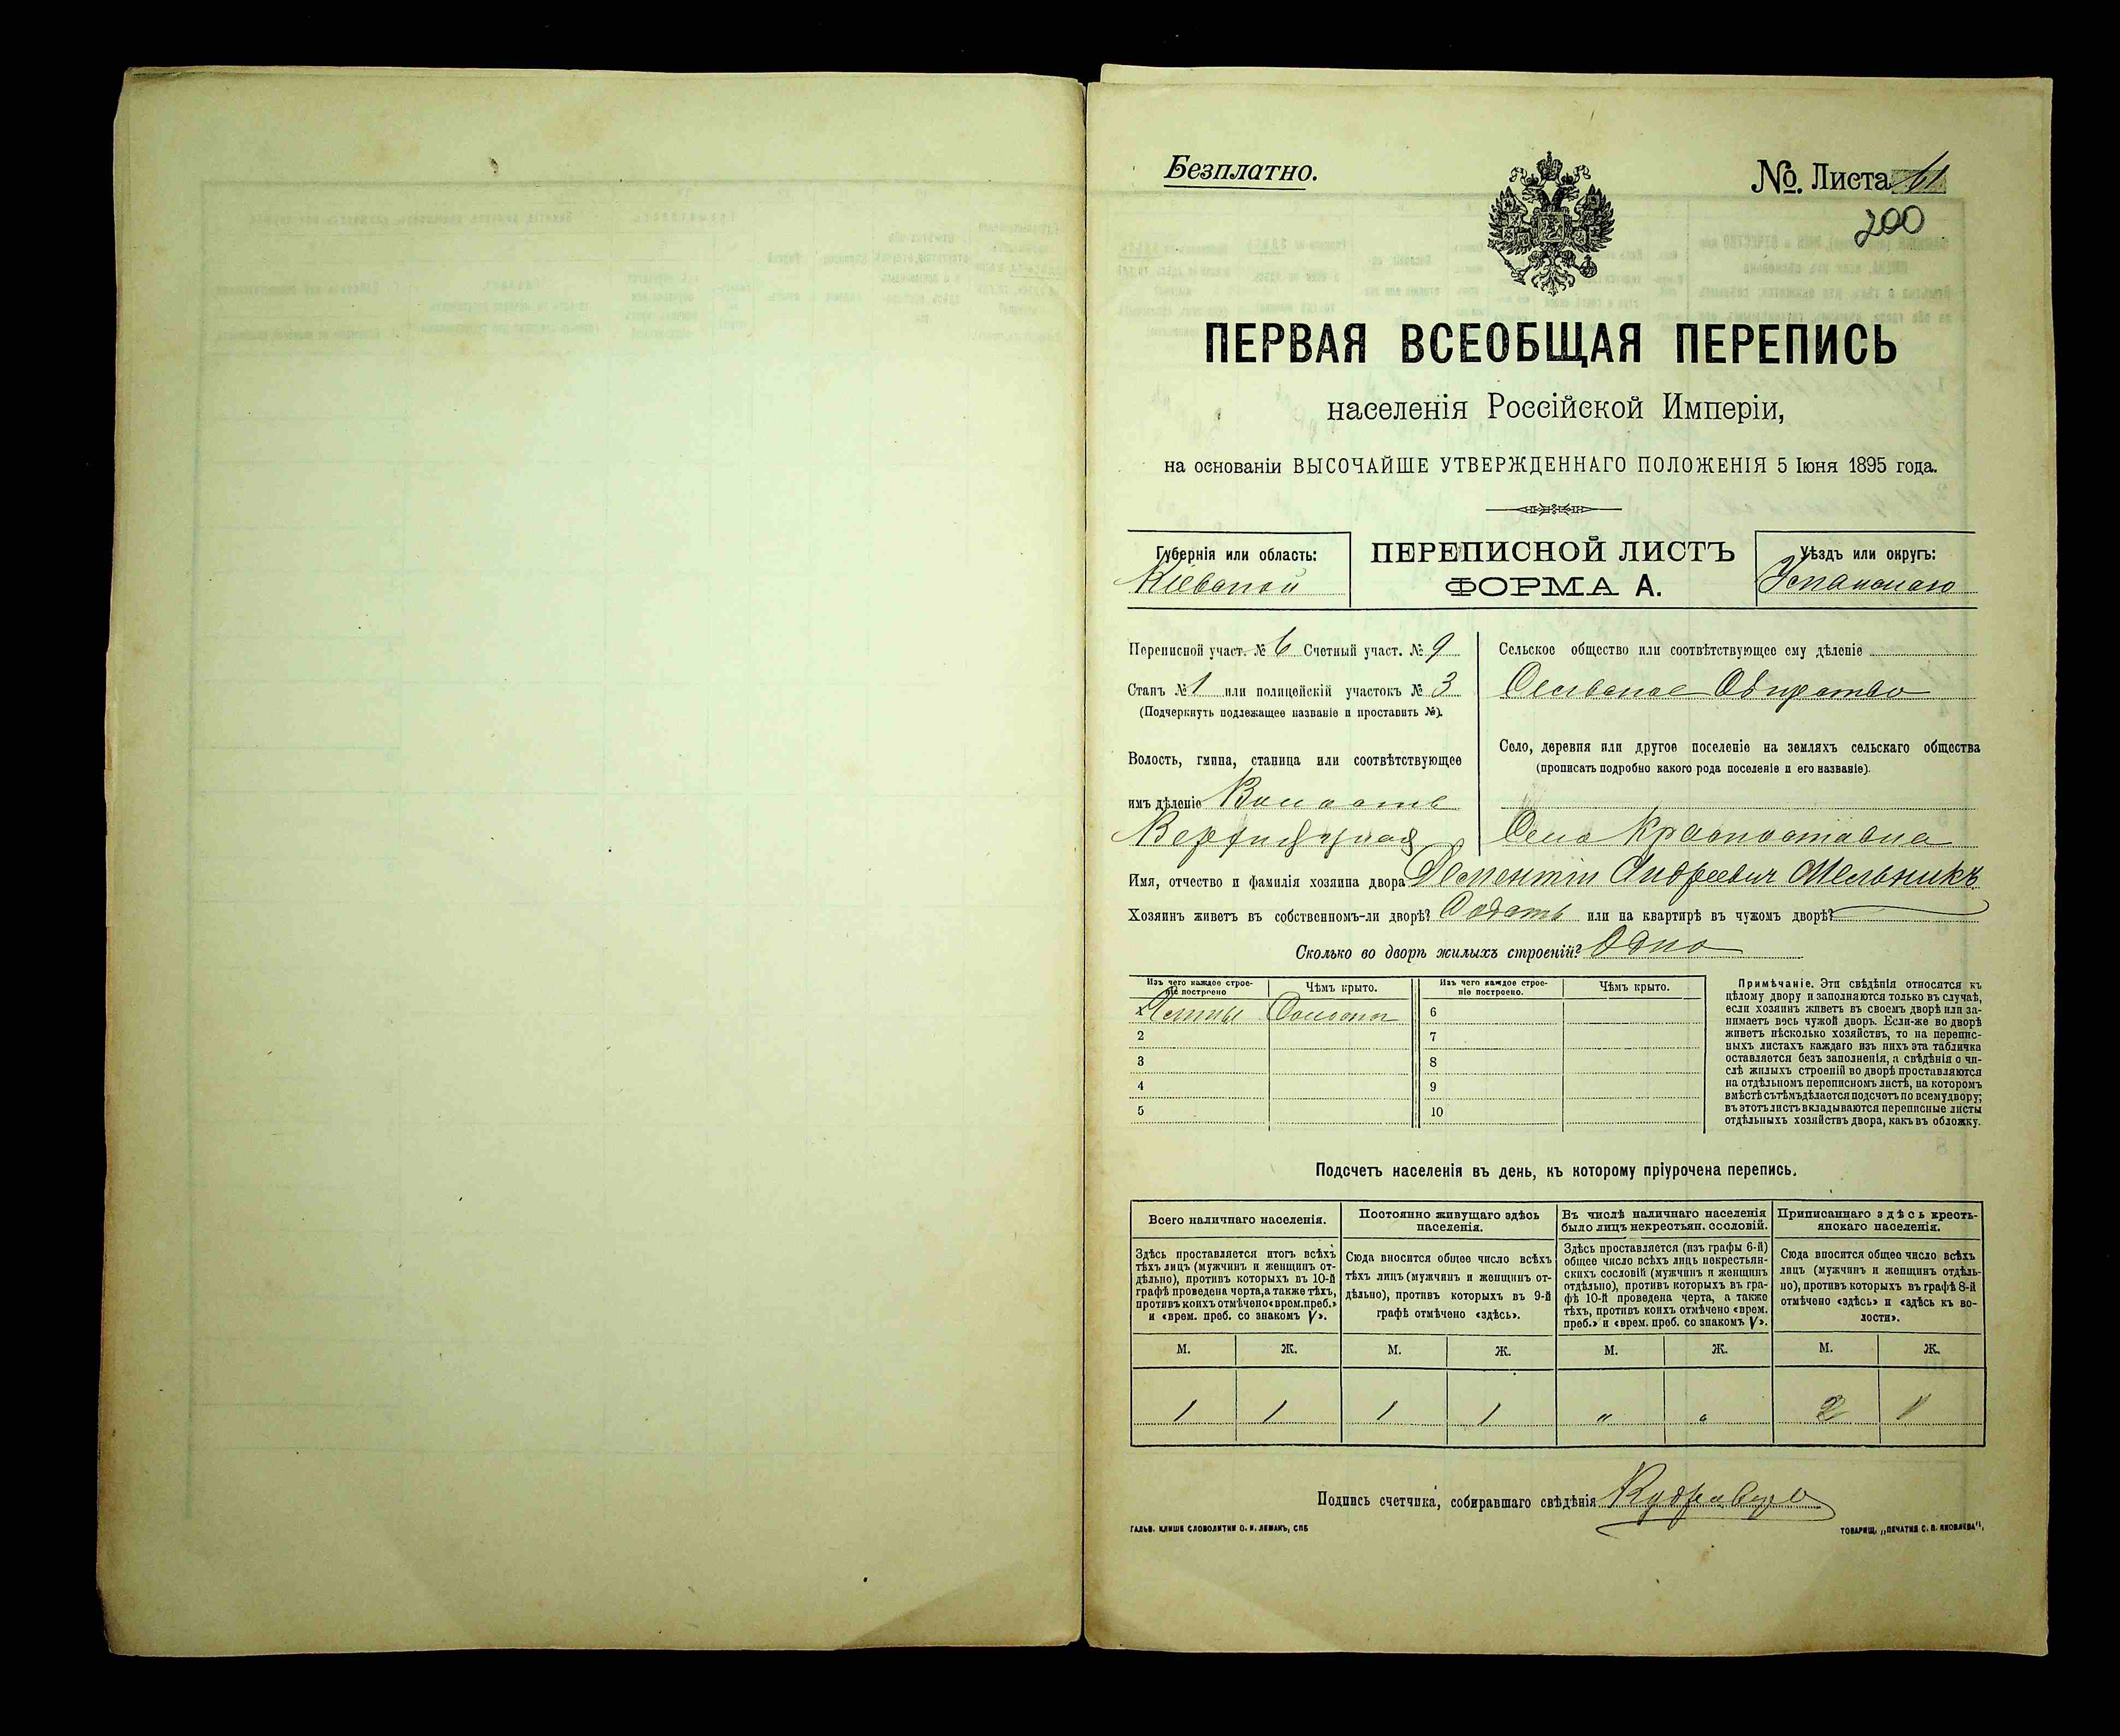 Безплатно.
№. Листа 61
200
ПЕРВАЯ ВСЕОБЩАЯ ПЕРЕПИСЬ
населенія Россійской Имперіи,
на основаніи ВЫСОЧАЙШЕ УТВЕРЖДЕННАГО ПОЛОЖЕНІЯ 5 Іюня 1895 года.
Губернія или область:
Кіевской
ПЕРЕПИСНОЙ ЛИСТЪ
ФОРМА А.
Уѣздъ или округъ:
Уманскаго
Переписной участ. № 6 Счетный участ. № 9
Станъ № 1 или полицейскій участокъ № 3
(Подчеркнуть подлежащее названіе и проставить №).
Волость, гмина, станица или соотвѣтствующее
имъ дѣленіе Волость
Сельское общество или соотвѣтствующее ему дѣленіе
Сельское Общество
Село, деревня или другое поселеніе на земляхъ сельскаго общества
(прописать подробно какого рода поселеніе и его названіе).
Село Краснопоставка
Имя, отчество и фамилія хозяина двора Дементій Андреевич Мельникъ
Хозяинъ живетъ въ собственномъ-ли дворѣ? или на квартирѣ въ чужомъ дворѣ?
Сколько во дворѣ жилыхъ строеній? Одно
Изъ чего каждое строеніе построено
Чѣмъ крыто.
Изъ чего каждое строеніе построено.
Чѣмъ крыто.
Глины Соломой
2
3
4
5
6
7
8
9
10
Примѣчаніе. Эти свѣдѣнія относятся къ
цѣлому двору и заполняются только въ случаѣ,
если хозяинъ живетъ въ своемъ дворѣ или за-
нимаетъ весь чужой дворъ. Если-же во дворѣ
живетъ нѣсколько хозяйствъ, то на перепис-
ныхъ листахъ каждаго изъ нихъ эта табличка
оставляется безъ заполненія, а свѣдѣнія о чи-
слѣ жилыхъ строеній во дворѣ проставляются
на отдѣльномъ переписномъ листѣ, на которомъ
вмѣстѣ съ тѣмъ дѣлается подсчетъ по всему двору;
въ этотъ листъ вкладываются переписные листы
отдѣльныхъ хозяйствъ двора, какъ въ обложку.
Подсчетъ населенія въ день, къ которому пріурочена перепись.
Всего наличнаго населенія.
Здѣсь проставляется итогъ всѣхъ
тѣхъ лицъ (мужчинъ и женщинъ от-
дѣльно), противъ которыхъ въ 10-й
графѣ проведена черта, а также тѣхъ,
противъ коихъ отмѣчено «врем. преб.»
и «врем. преб. со знакомъ V».
Постоянно живущаго здѣсь
населенія.
Сюда вносится общее число всѣхъ
тѣхъ лицъ (мужчинъ и женщинъ от-
дѣльно), противъ которыхъ въ 9-й
графѣ отмѣчено «здѣсь».
Въ числѣ наличнаго населенія
было лицъ некрестьян. сословій.
Здѣсь проставляется (изъ графы 6-й)
общее число всѣхъ лицъ некрестьян-
скихъ сословій (мужчинъ и женщинъ
отдѣльно), противъ которыхъ въ гра-
фѣ 10-й проведена черта, а также
тѣхъ, противъ коихъ отмѣчено «врем.
преб.» и «врем. преб. со знакомъ V».
Приписаннаго здѣсь кресть-
янскаго населенія.
Сюда вносится общее число всѣхъ
лицъ (мужчинъ и женщинъ отдѣль-
но), противъ которыхъ въ графѣ 8-й
отмѣчено «здѣсь» и «здѣсь къ во-
лости».
М. Ж. М. Ж. М. Ж. М. Ж.
1 1 1 1 " " 2 1
Подпись счетчика, собиравшаго свѣдѣнія
ГАЛЬВ. КЛИШЕ СЛОВОЛИТНИ О. И. ЛЕМАНЪ, СПБ
ТОВАРИЩ. „ПЕЧАТНЯ С. П. ЯКОВЛЕВА",